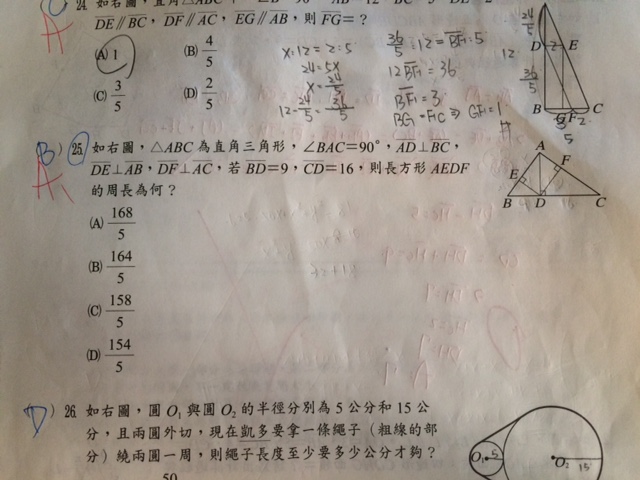 24. 如右圖,直角△ABC
DE∥BC,DF∥AC,EG∥AB,則FG=?
(A) 1
(B) 4/5
(C) 3/5
(D) 2/5
x:12=2:5
24=5x
x=24/5
12-24/5=36/5
36/5:12=BF:5
12BF=36
BF=3
BG=FC⇒GF=1
24/5
12
36/5
D 2 E
B G F 2 C
5
A
B) 25. 如右圖,△ABC 為直角三角形,∠BAC=90°,AD⊥BC,
DE⊥AB,DF⊥AC,若 BD=9,CD=16,則長方形 AEDF
的周長為何?
A
(A) 168/5
(B) 164/5
(C) 158/5
(D) 154/5
A
F
E
B D C
D) 26. 如右圖,圓 O₁ 與圓 O₂ 的半徑分別為 5 公分和 15 公
分,且兩圓外切,現在凱多要拿一條繩子(粗線的部
分)繞兩圓一周,則繩子長度至少要多少公分才夠?
O₁ 5
O₂ 15
50